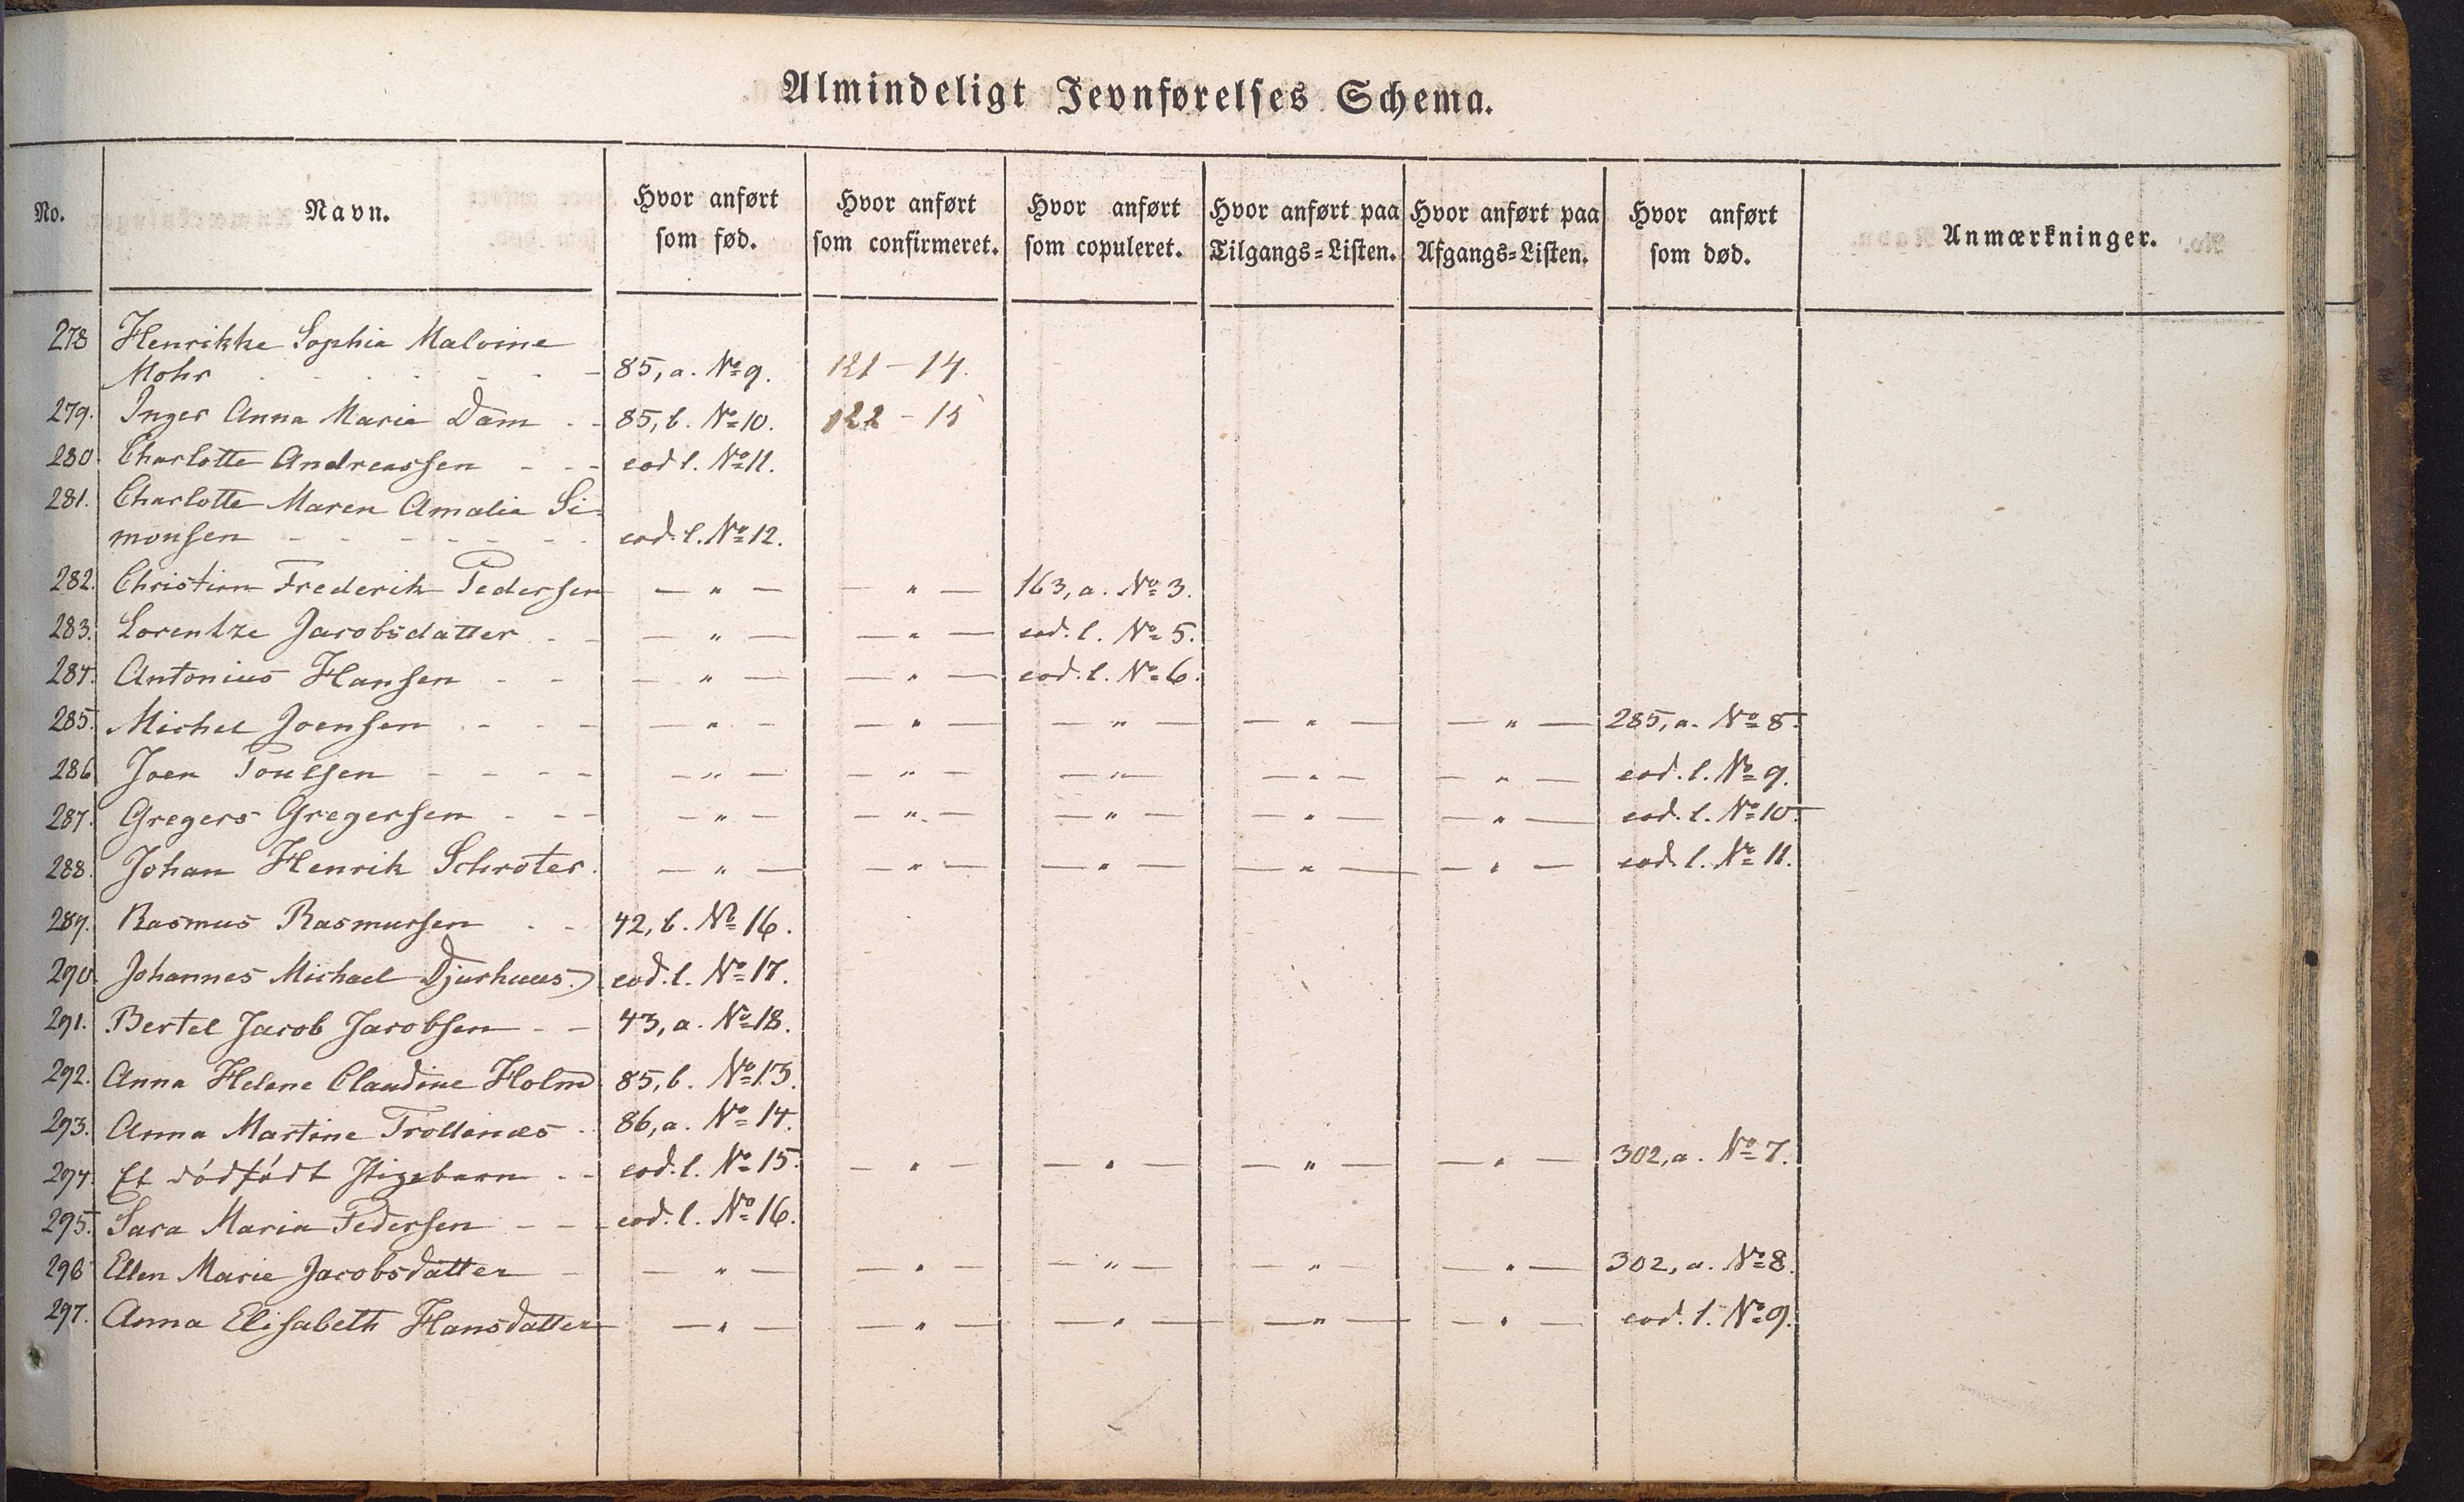 Almindeligt Jevnførelses Schema.
No. Navn. Hvor anført som fød. Hvor anført som confirmeret. Hvor anført som copuleret. Hvor anført paa Tilgangs=Listen. Hvor anført paa Afgangs=Listen. Hvor anført som død. Anmærkninger.
278 Henrikke Sophie Malvine
Mohr - - - - - - 85, a. No 9. 121 - 14.
279. Inger Anna Marie Dam - - 85, b. No 10. 122 - 15
280 Charlotte Andreassen - - - eod l. No 11.
281. Charlotte Maren Amalie Si=
monsen - - - - - - eod. l. No 12.
282. Christian Frederik Pedersen — " — — " — 163, a. No 3.
283. Lorentze Jacobsdatter - - — " — — " — eod. l. No 5.
284. Antonius Hansen - - — " — — " — eod. l. No 6.
285. Michel Joensen - - - — " — — " — — " — — " — — " — 285, a. No 8.
286 Joen Poulsen - - - - — " — — " — — " — — " — — " — eod. l. No 9.
287. Gregers Gregersen - - - — " — — " — — " — — " — — " — eod. l. No 10.
288. Johan Henrik Schrøter. — " — — " — — " — — " — — " — eod. l. No 11.
289. Rasmus Rasmussen - - 42, b. No 16.
290. Johannes Michael Djurhuus.) eod. l. No 17.
291. Bertel Jacob Jacobsen - - 43, a. No 18.
292. Anna Helene Claudine Holm 85, b. No 13.
293. Anna Martine Trøllenæs - 86, a. No 14.
294. Et dødfødt Pigebarn - - eod. l. No 15. — " — — " — — " — — " — 302, a. No 7.
295. Sara Maria Pedersen - - - eod. l. No 16.
296 Ellen Marie Jacobsdatter - — " — — " — — " — — " — — " — 302, a. No 8.
297. Anna Elisabeth Hansdatter — " — — " — — " — — " — — " — eod. l. No 9.